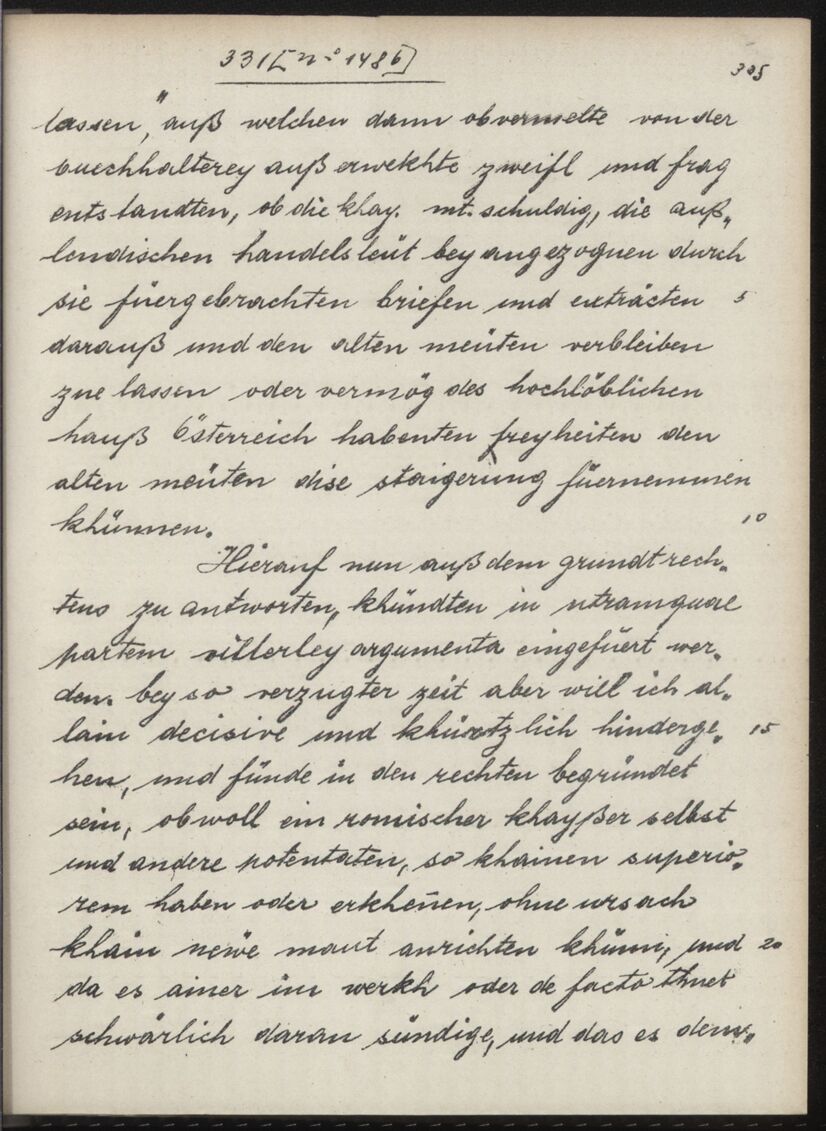 331[n-o 1486]
305
lassen," auß welchen dann obvermelte von der
buechhalterey außerwekhte zweifl und frag
entstandten, ob die khay. mt. schuldig, die auß„
lendischen handelsleüt bey angezognen durch
sie füergebrachten briefen und exträcten 5
darauß und den alten meüten verbleiben
zue lassen oder vermög des hochlöblichen
hauß Österreich habenten freyheiten den
alten meüten dise staigerung füernemmen
khünnen. 10
Hierauf nun auß dem grundt rech„
tens zu antworten, khündten in utramque
partem villerley argumenta eingefüert wer„
den. bey so verzugter zeit aber will ich al„
lain decisive und khürtzlich hinderge„ 15
hen, und fünde in den rechten begründet
sein, obwoll ein romischer khayßer selbst
und andere potentaten, so khainen superio„
rem haben oder erkheñen, ohne ursach
khain newe maut anrichten khünn, und 20
da es ainer im werkh oder de facto thuet
schwärlich daran sündige, und das es dem„